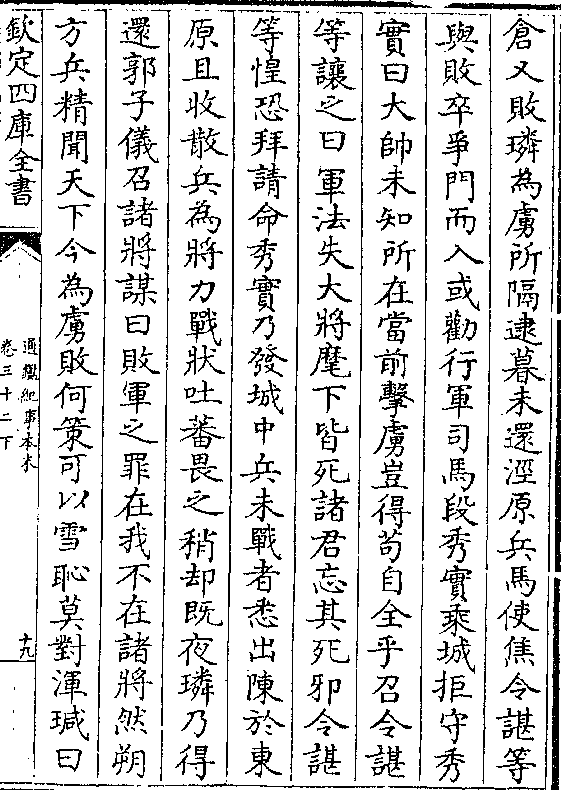 倉又敗璘為虜所隔逮暮未還涇原兵馬使焦令諶等
與敗卒爭門而入或勸行軍司馬段秀實乘城拒守秀
實曰大帥未知所在當前擊虜豈得苟自全乎召令諶
等讓之曰軍法失大將麾下皆死諸君忘其死邪令諶
等惶恐拜請命秀實乃發城中兵未戰者悉出陳於東
原且收散兵為將力戰狀吐蕃畏之稍却既夜璘乃得
還郭子儀召諸將謀曰敗軍之罪在我不在諸將然朔
方兵精聞天下今為虜敗何策可以雪恥莫對渾瑊曰
欽定四庫全書
通鑑紀事本末
卷三十二下
十九